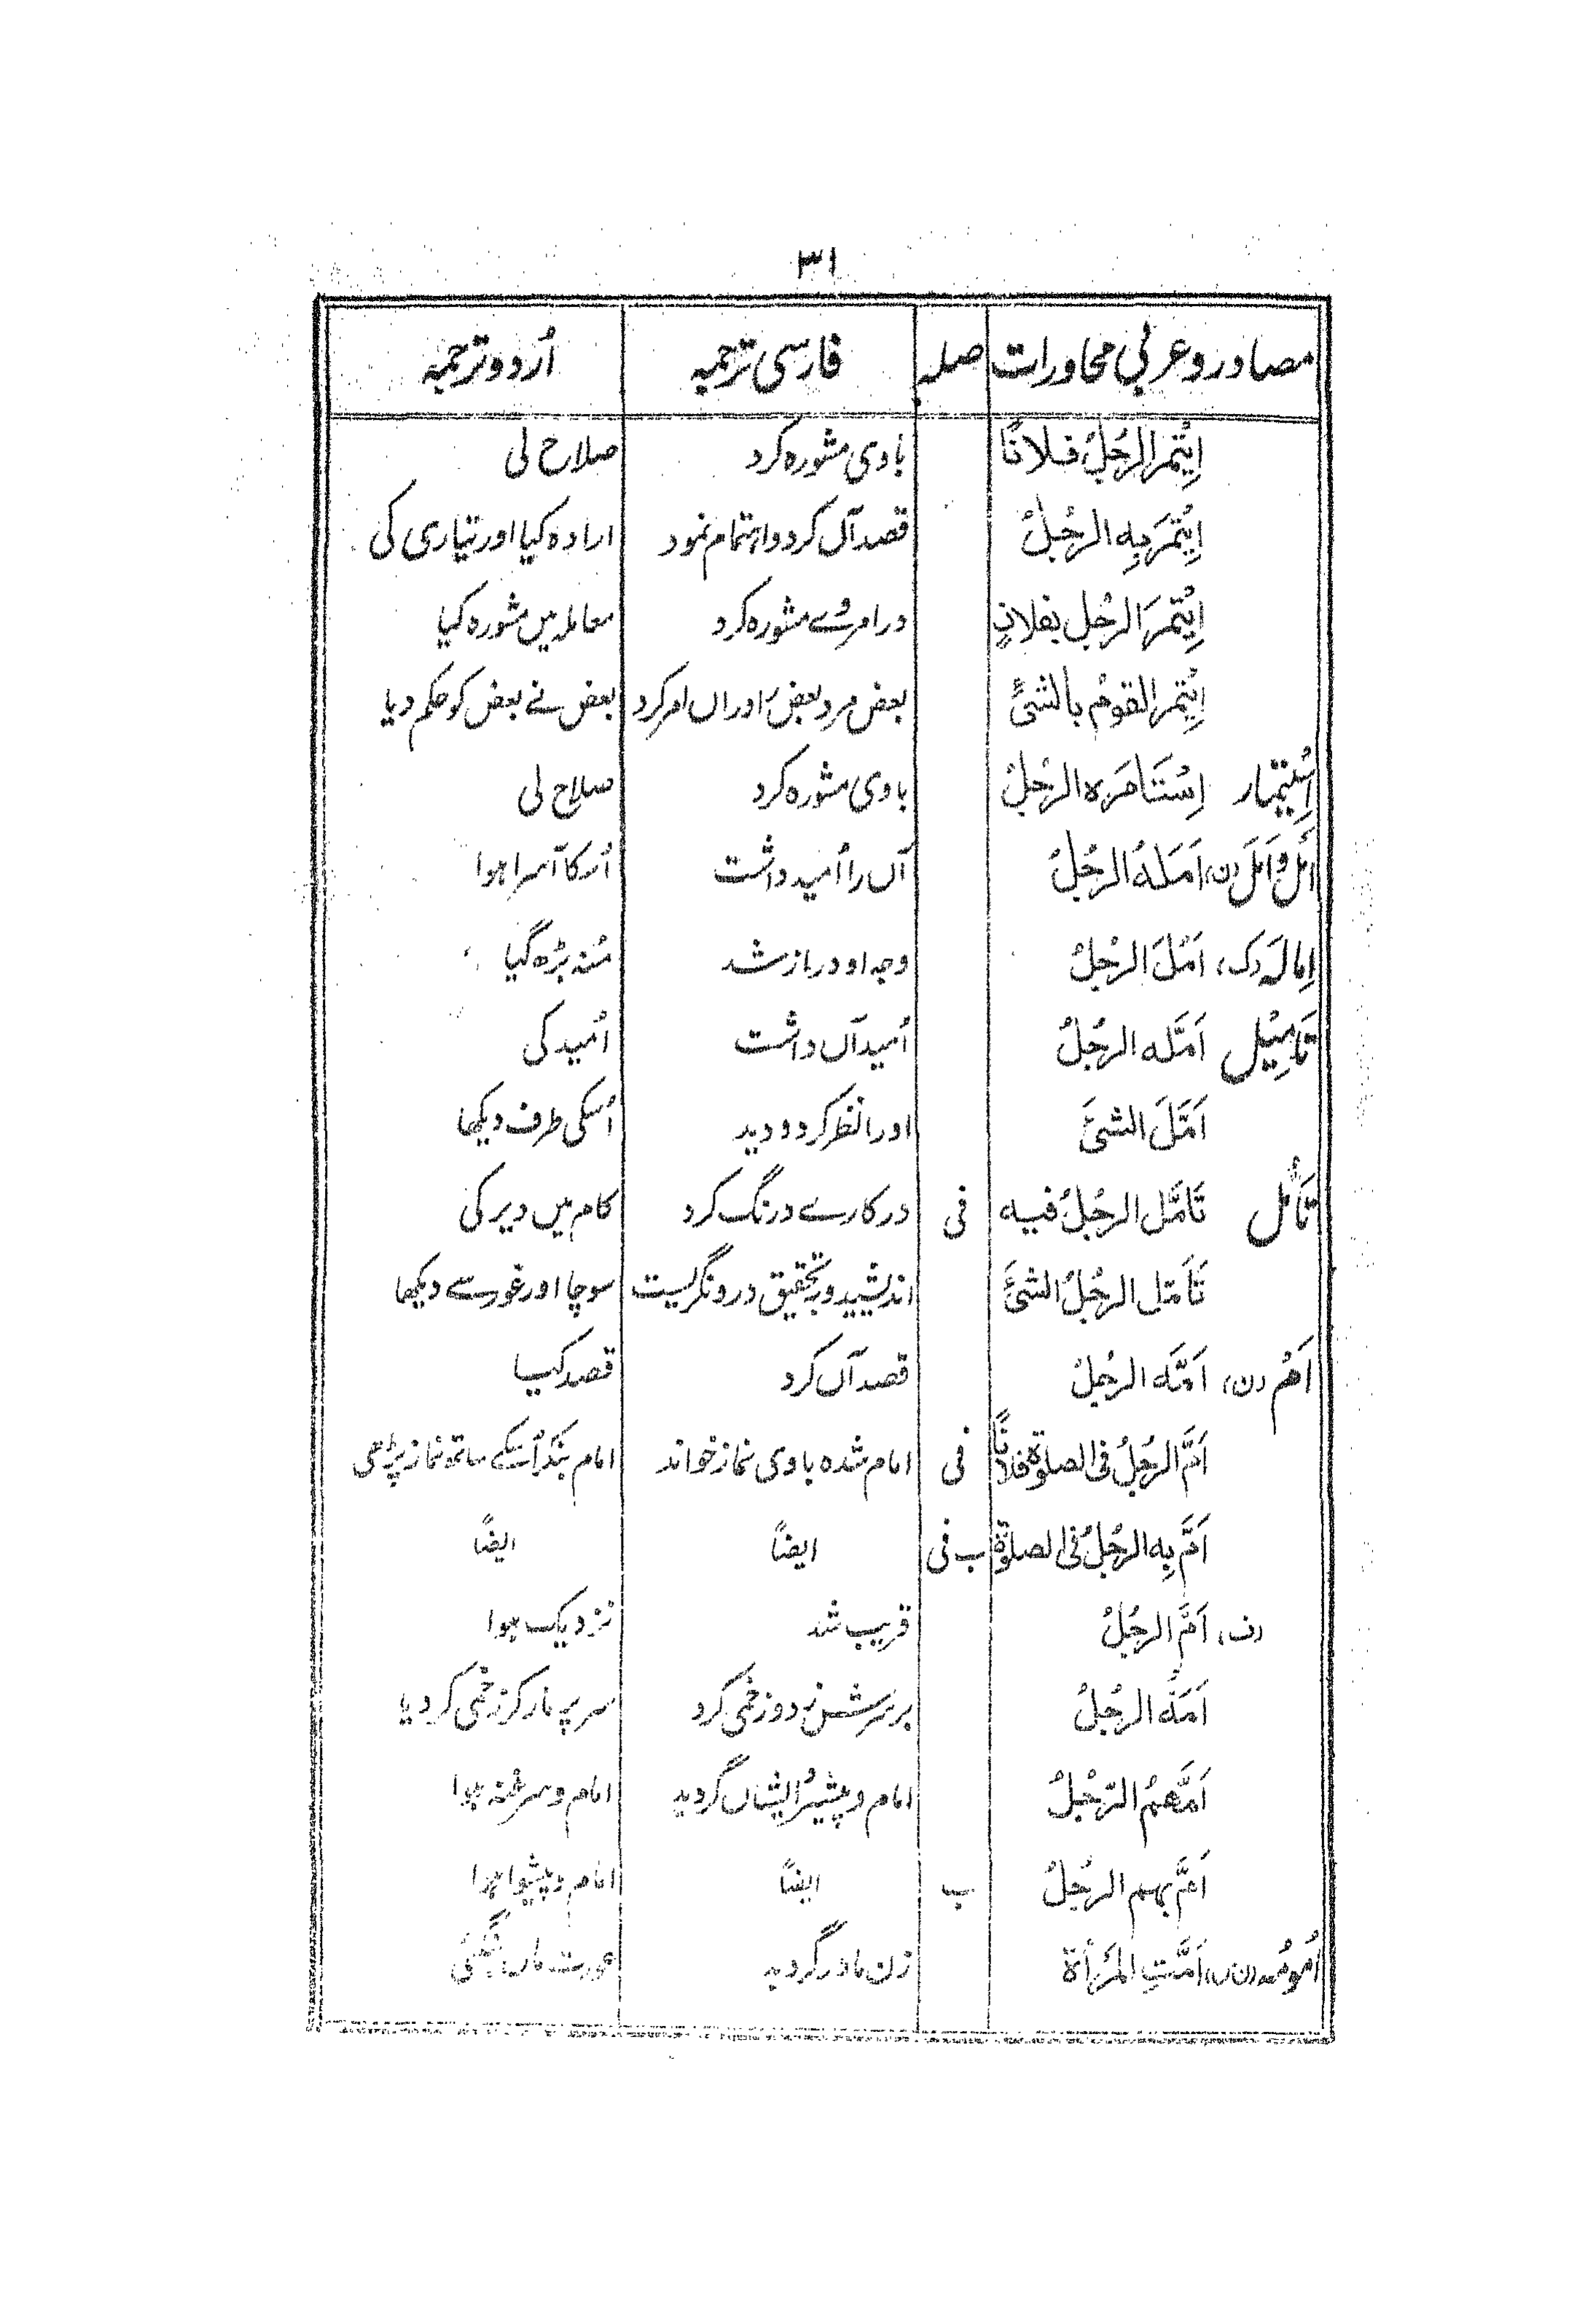 ۳۱
مصادر و عربی محاورات صلہ فارسی ترجمہ اُردو ترجمہ
اِیْتَمَرَ الرَّجُلُ فلانًا باوی مشورہ کرد صلاح لی
اِیْتَمَرَ بِهِ الرجُلُ قصد آں کرد و اہتمام نمود ارادہ کیا اور تیاری کی
اِیْتَمَرَ الرجُل بفلانٍ در امر وے مشورہ کرد معاملہ میں مشورہ کیا
اِیْتَمَرَ القومُ بالشئ بعض مر بعض را دراں امر کرد بعض نے بعض کو حکم دیا
اِسْتِیْمار اِسْتَامَرَہ الرجُلُ باوی مشورہ کرد صلاح لی
اَمْل و اَمَل (ن) اَمَلَهُ الرجُلُ آں را اُمید داشت اُسکا آسرا ہوا
اِمالہ (ک) اَمُلَ الرجُلُ وجہ او دراز شد مُنہ بڑھ گیا
تَامِیْل اَمَّلَه الرجُلُ اُمید آں داشت اُمید کی
اَمَّلَ الشئَ اورا نظر کرد و دید اُسکی طرف دیکھا
تَأَمُّل تَامَّل الرجُلُ فیہ فی در کارے درنگ کرد کام میں دیر کی
تَأَمَّل الرجُلُ الشئَ اندیشید و بتحقیق درو نگریست سوچا اور غور سے دیکھا
اَمّ (ن) اَمَّه الرجُلُ قصد آں کرد قصد کیا
اَمَّ الرجُلُ فی الصلوٰة فلانًا فی امام شدہ باوی نماز خواند امام بنکر اُسکے ساتھ نماز پڑھی
اَمَّ بِهِ الرجُلُ فی الصلوٰة ب فی ایضًا ایضًا
(ف) اَمَّ الرجُلُ قریب شد نزدیک ہوا
اَمَّهُ الرجُلُ بر سرش زد و زخمی کرد سر پر مار کر زخمی کر دیا
اَمَّهُمُ الرَّجُلُ امام و پیشرُ ایشاں گردید امام و سرغنہ ہوا
اَمَّ بهم الرجُلُ ب ایضًا امام و پیشوا ہوا
اُمُومَہ (ن س) اَمَّتِ المَرْأة زن مادر گردید عورت ماں بنگئی